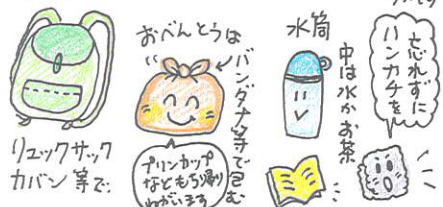 リュックサック
カバン等で。
おべんとうは
バンダナ等で包む
プリンカップ
などもち帰り
ねがいます
水筒
中は水かお茶
忘れずに
ハンカチを